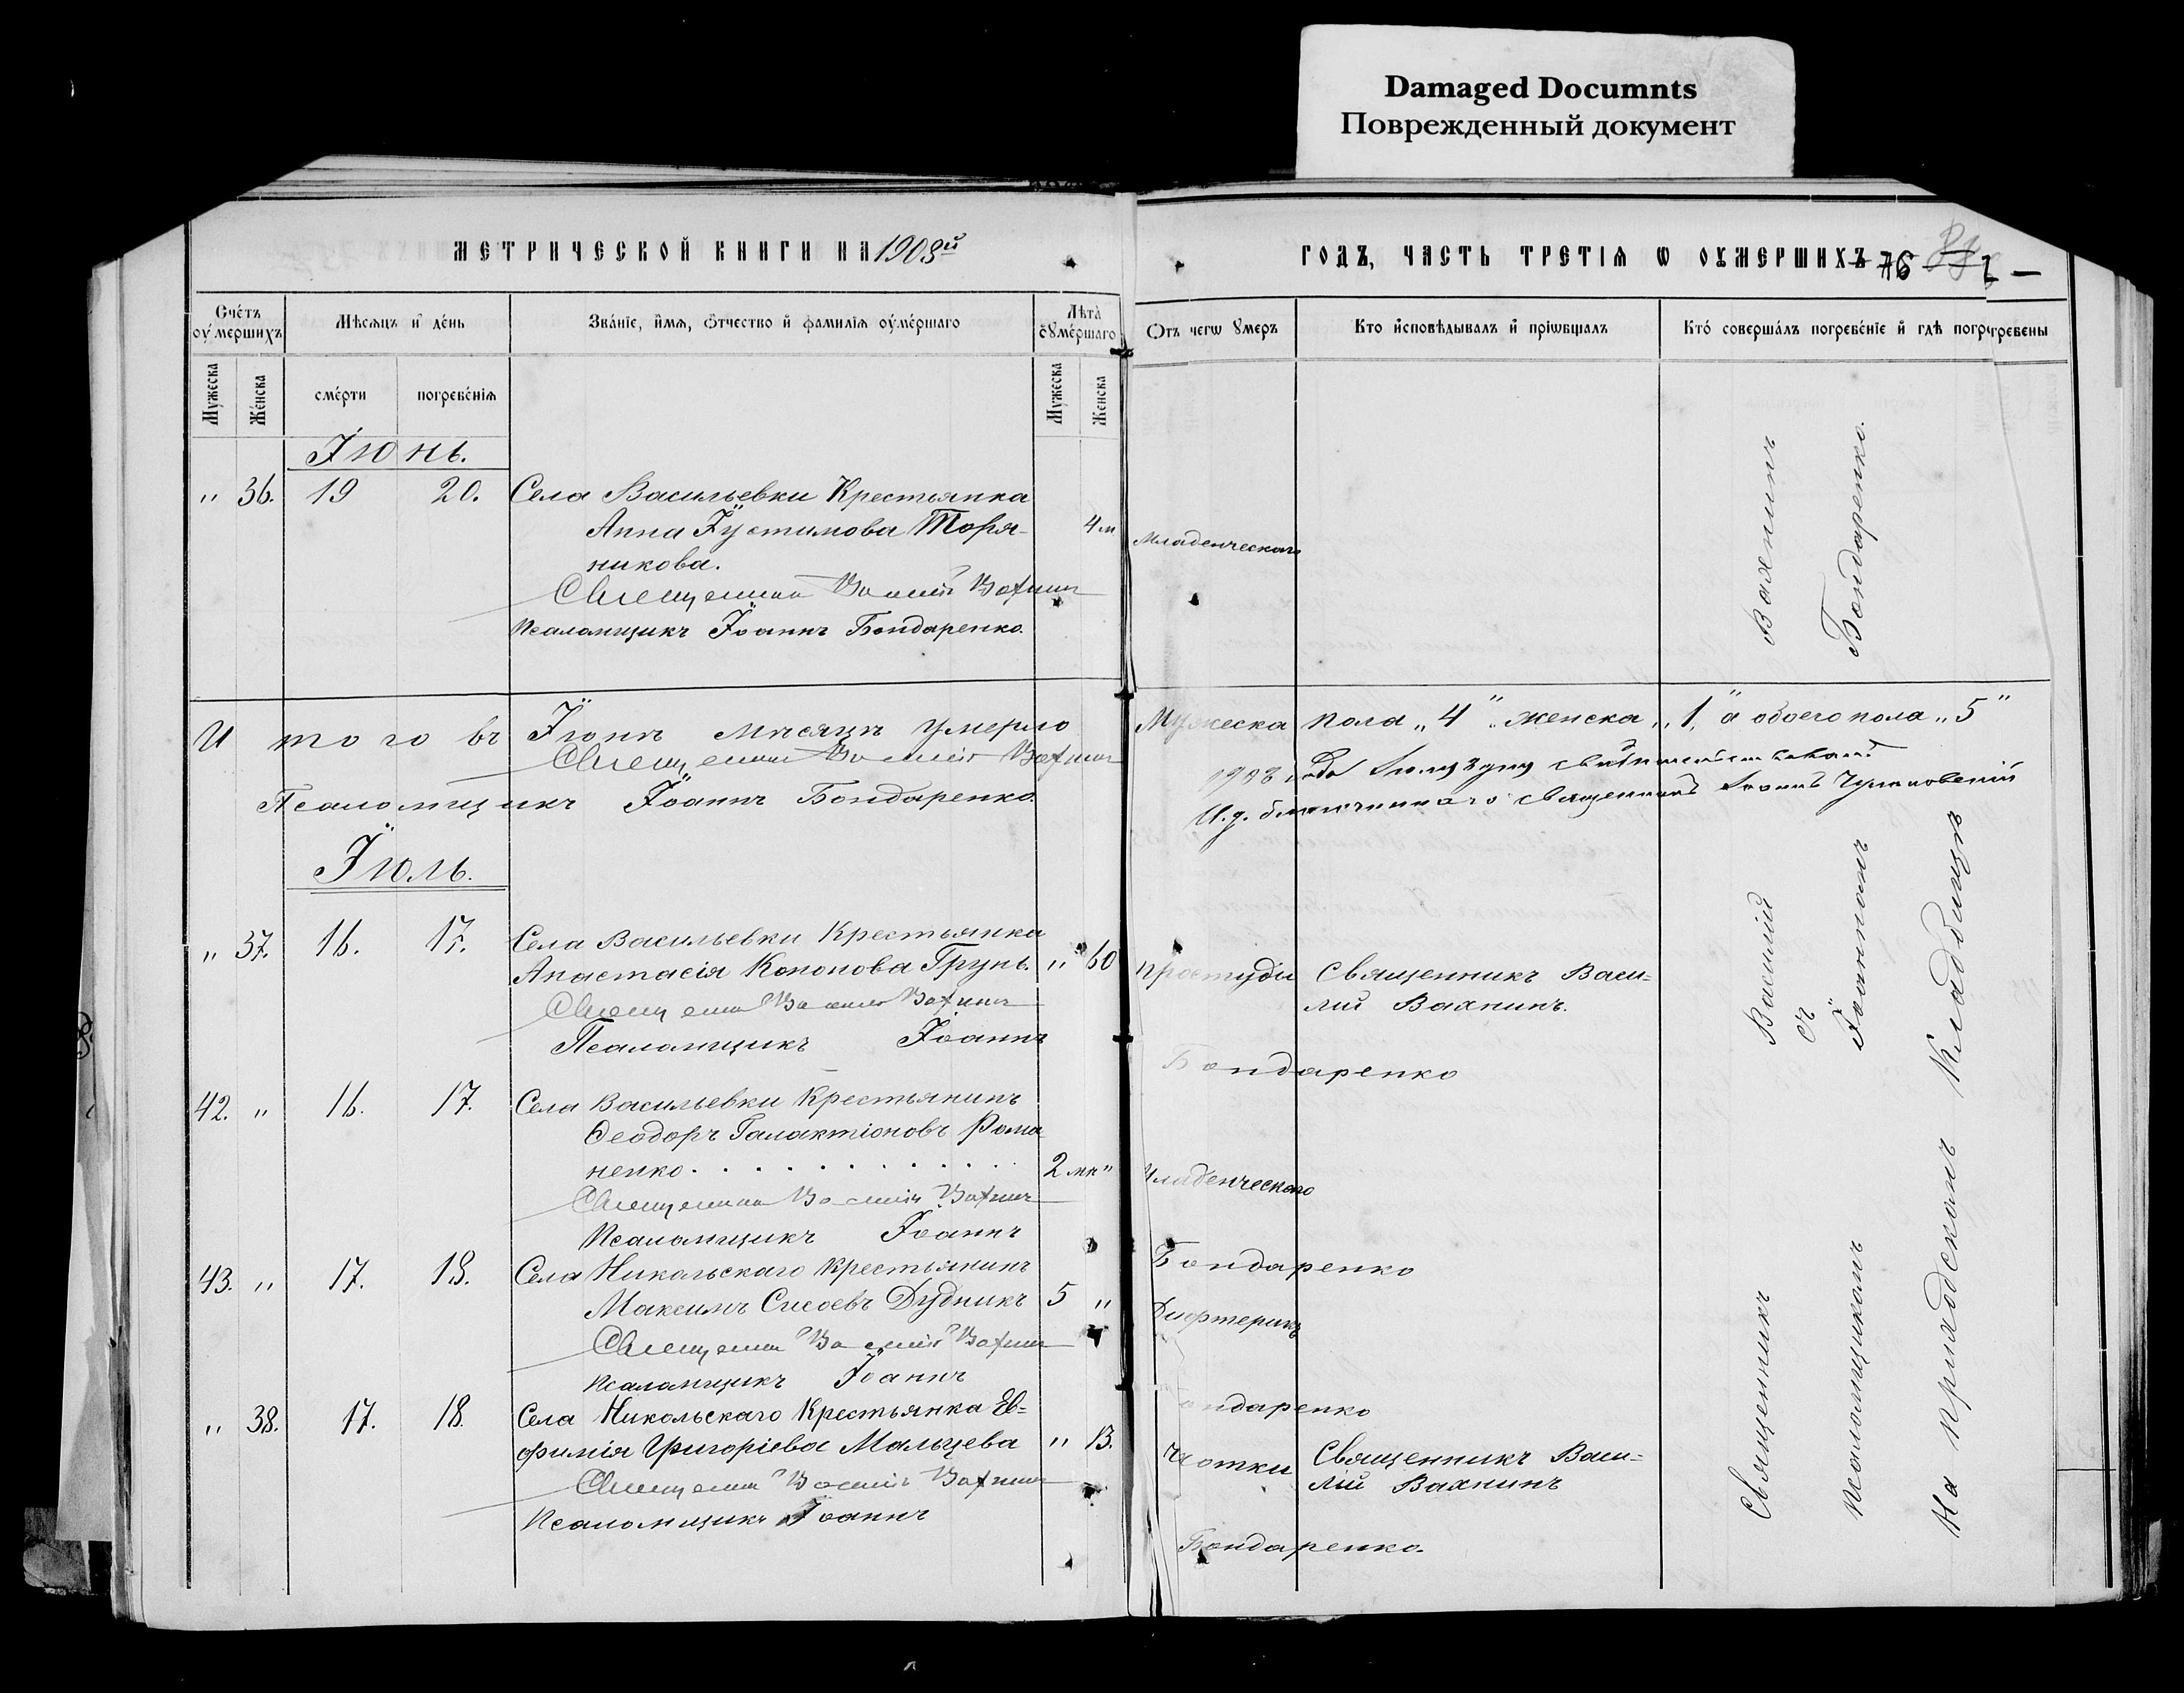 Damaged Documnts
Поврежденный документ
МЕТРИЧЕСКОЙ КНИГИ НА 1908й
Счетъ оумершихъ
Мѣсяцъ и день
Званіе, имя, отчество и фамилія оумершаго
Лѣта оумершаго
Мужеска
Женска
смерти
погребенія
Мужеска
Женска
Іюнь.
" 36. 19 20. Села Васильевки Крестьянка
Анна Іустимова Торя-
никова. 4 м
Священникъ Василій Вахнинъ
Псаломщикъ Іоаннъ Бондаренко.
Итого въ Іюнѣ мѣсяцѣ умерло
Священникъ Василій Вахнинъ
Псаломщикъ Іоаннъ Бондаренко.
Іюль.
" 37. 16. 17. Села Васильевки Крестьянка
Анастасія Кононова Грунь. " 60
Священникъ Василій Вахнинъ
Псаломщикъ Іоаннъ
42. " 16. 17. Села Васильевки Крестьянинъ
Ѳеодоръ Галактіоновъ Рома
ненко. . . . . . . . . . . 2 мк "
Священникъ Василій Вахнинъ
Псаломщикъ Іоаннъ
43. " 17. 18. Села Никольскаго Крестьянинъ
Максимъ Сисоевъ Дудникъ 5 "
Священникъ Василій Вахнинъ
Псаломщикъ Іоаннъ
" 38. 17. 18. Села Никольскаго Крестьянка Ев=
фимія Григоріева Мальцева " 13.
Священникъ Василій Вахнинъ
Псаломщикъ Іоаннъ
ГОДЪ, ЧАСТЬ ТРЕТІЯ Ѡ ОУМЕРШИХЪ 76
Отъ чегѡ умеръ
Кто исповѣдывалъ и пріѡбщалъ
Кто совершалъ погребеніе и гдѣ погребены
Младенческаго
Мужеска пола "4" женска "1" а обоего пола "5"
1908 года
И. д. благочиннаго священникъ
Простуды Священникъ Васи=
лій Вахнинъ.
Бондаренко
Младенческаго
Бондаренко
Дифтеритъ
ондаренко
Чахотки Священникъ Васи=
лій Вахнинъ
Бондаренко.
Священникъ Василій Вахнинъ
съ
Псаломщикомъ Іоанномъ Бондаренко.
На приходскомъ Кладбищѣ